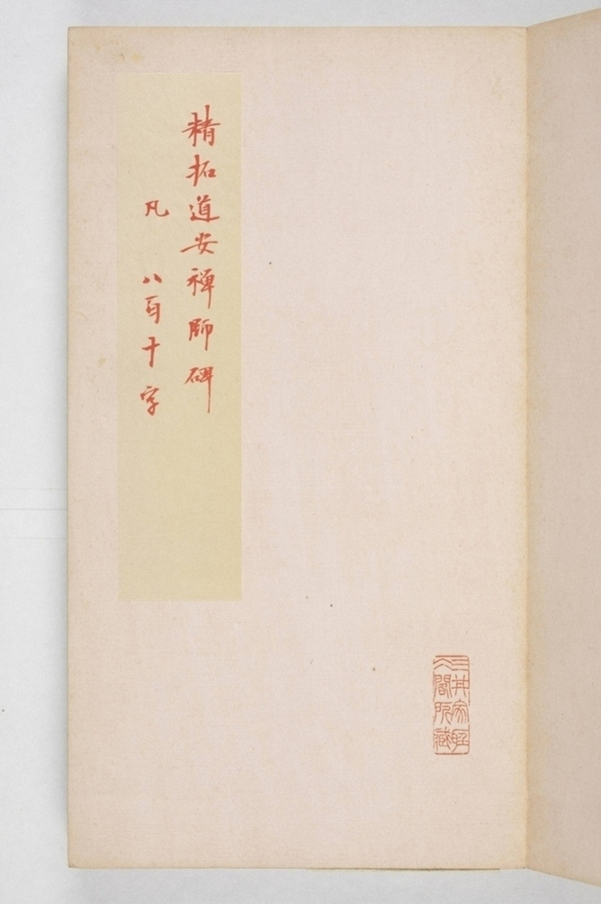 精拓道安禪師碑
凡 八百十字
三井家聽
仌閣所藏